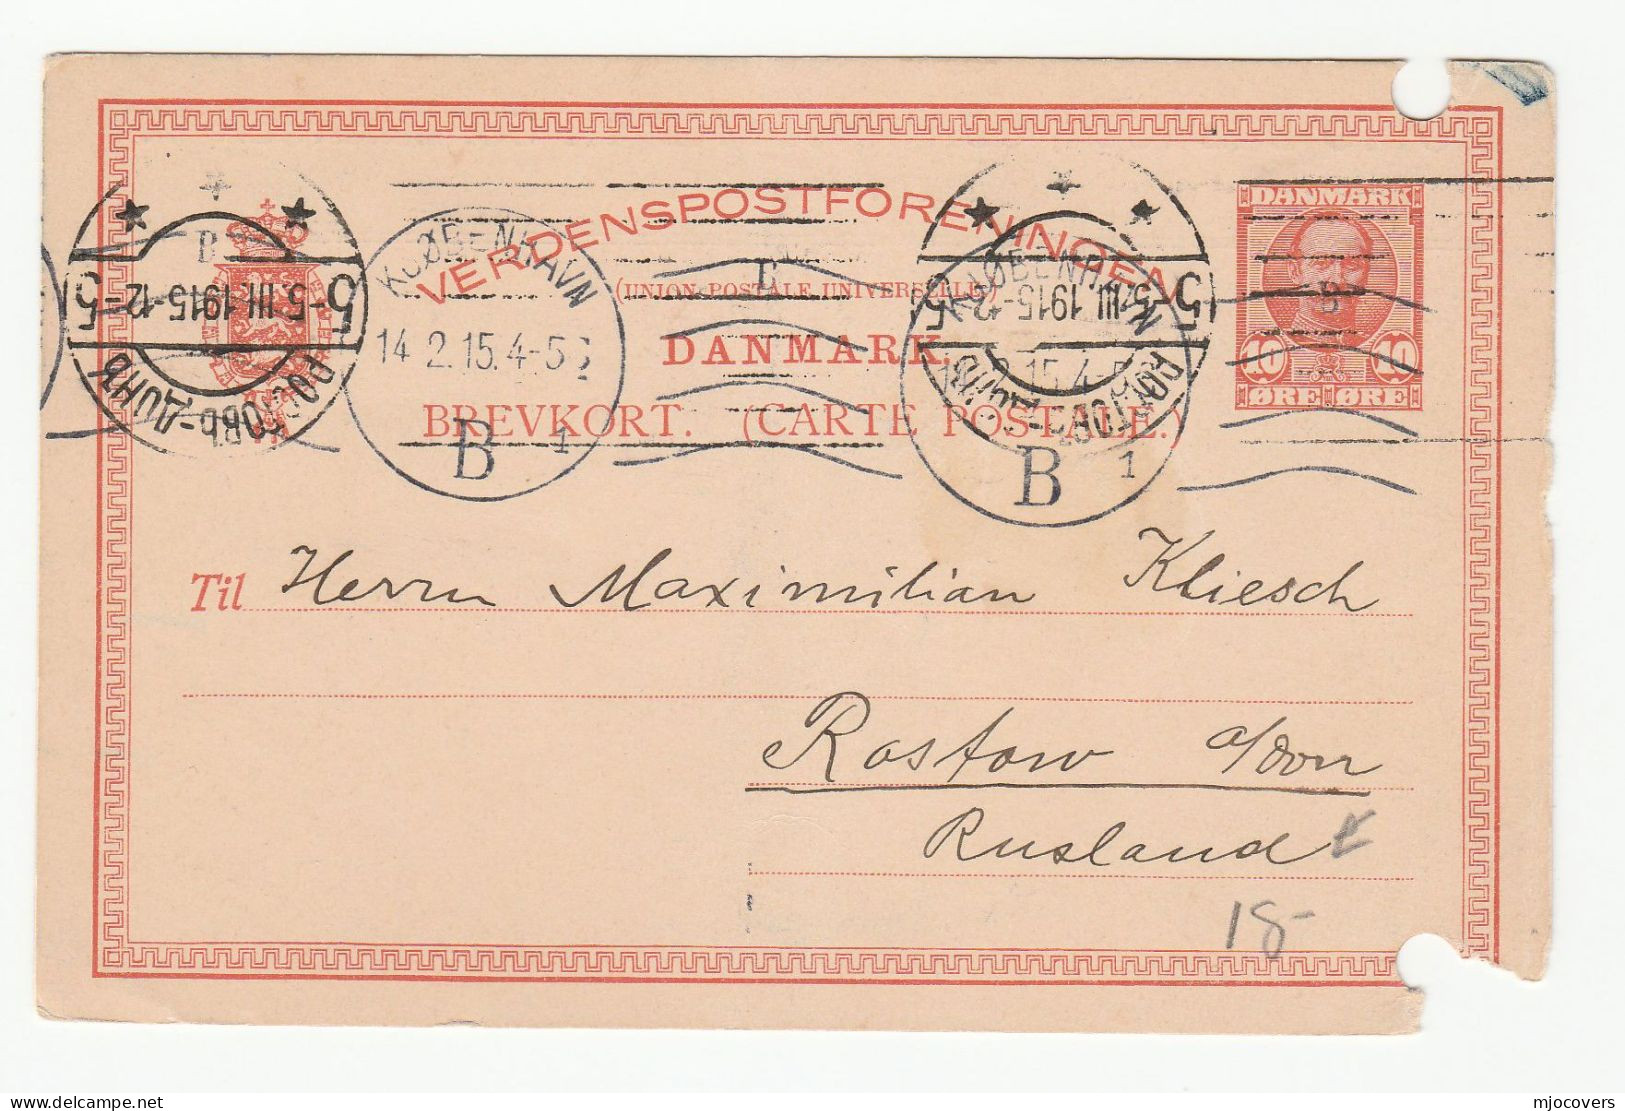 VERDENSPOSTFORENINGEN
(UNION POSTALE UNIVERSELLE)
DANMARK.
BREVKORT. (CARTE POSTALE.)
DANMARK
10 10
ØRE ØRE
KJØBENHAVN
14 2.15. 4-5
B 1
KJØBENHAVN
15.4-5
B 1
B
B
B
5 5.III.1915-12 5
РОСТОВЪ-ДОНЪ
5 5.III.1915-12 5
РОСТОВЪ-ДОНЪ
Til Herrn Maximilian Kliesch
Rostow a/Don
Rusland
18-
mjocovers